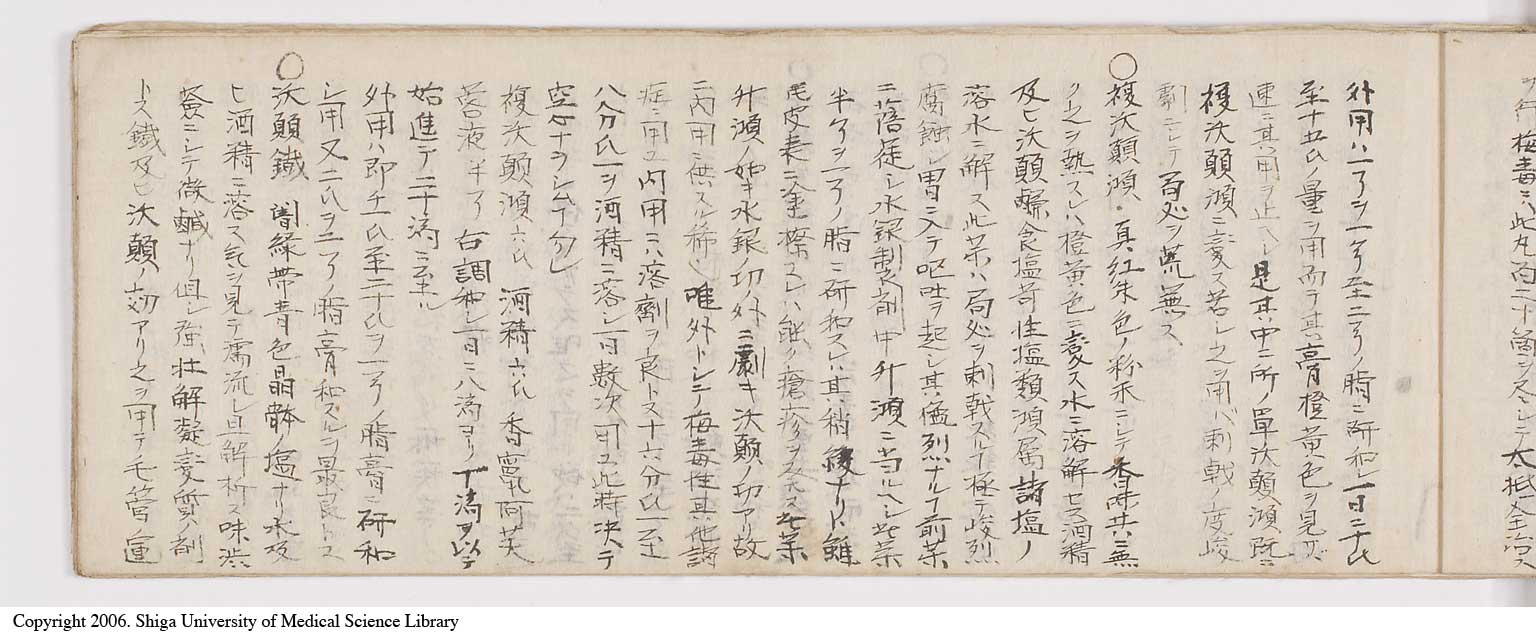 九年梅毒ニハ此丸百二十箇ヲ尽シテ大抵全治ス
外用ハ一了ヲ一了至二了ノ脂ニ研和シ一日二十氏
至十五氏ノ量ヲ用而テ其膏橙黄色ヲ見ハ
速ニ其用ヲ止ヘシ是其中ニ所ノ単沃顛澒既ニ
複沃顛澒ニ変ス若シ之ヲ用バ刺戟ノ度峻
劇ニシテ百処ヲ荒蕪ス
○複沃顛澒・真紅朱色ノ粉末ニシテ香味共ニ無
ク之ヲ熱スレハ橙黄色ニ変ス水ニ溶解セス酒精
及ヒ沃顛 食塩 性塩類澒属諸塩ノ
溶水ニ解ス此薬ハ局処ヲ刺戟スルコ極テ峻烈
腐蝕シ胃ニ入テ嘔吐ヲ起シ其猛烈ナルコ前薬
ニ蓓蓰シ水銀製剤中升澒ニ当ルヘシ此薬
半了ヲ一了ノ脂ニ研和スレハ其稍緩ナリト雖
毛皮表ニ塗擦スレハ能ク瘡疹ヲ発ス此薬
升澒ノ如キ水銀ノ功ノ外ニ劇キ沃顛ノ功アリ故
ニ内用ニ供スル稀シ唯外トシテ梅毒性其他諸
症ニ用ユ内用ニハ溶剤ヲ良トス十六分氏一至十
八分氏一ヲ河精ニ溶シ一日数次用ユ此時決テ
空心ナラシムコ勿レ
複沃顛澒六氏 酒精六氏 香竄阿芙
蓉液半了 右調和シ一日ニ八滴ヨリ丁滴ヲ以テ
始進テ二十滴ニ至ル
外用ハ即チ十氏至二十氏ヲ一了ノ脂膏ニ研和
シ用又二氏ヲ二了ノ脂膏和スルヲ最良トス
○沃顛鐵 闇緑帯青色晶體ノ塩ナリ水及
ヒ酒精ニ溶ス気ヲ見テ濡流シ且解析ス味渋
苔ニシテ微鹹ナリ但シ強壮解凝変質ノ剤
トス鐵及ヒ沃顛ノ功アリ之ヲ用テ毛管運
Copyright 2006. Shiga University of Medical Science Library